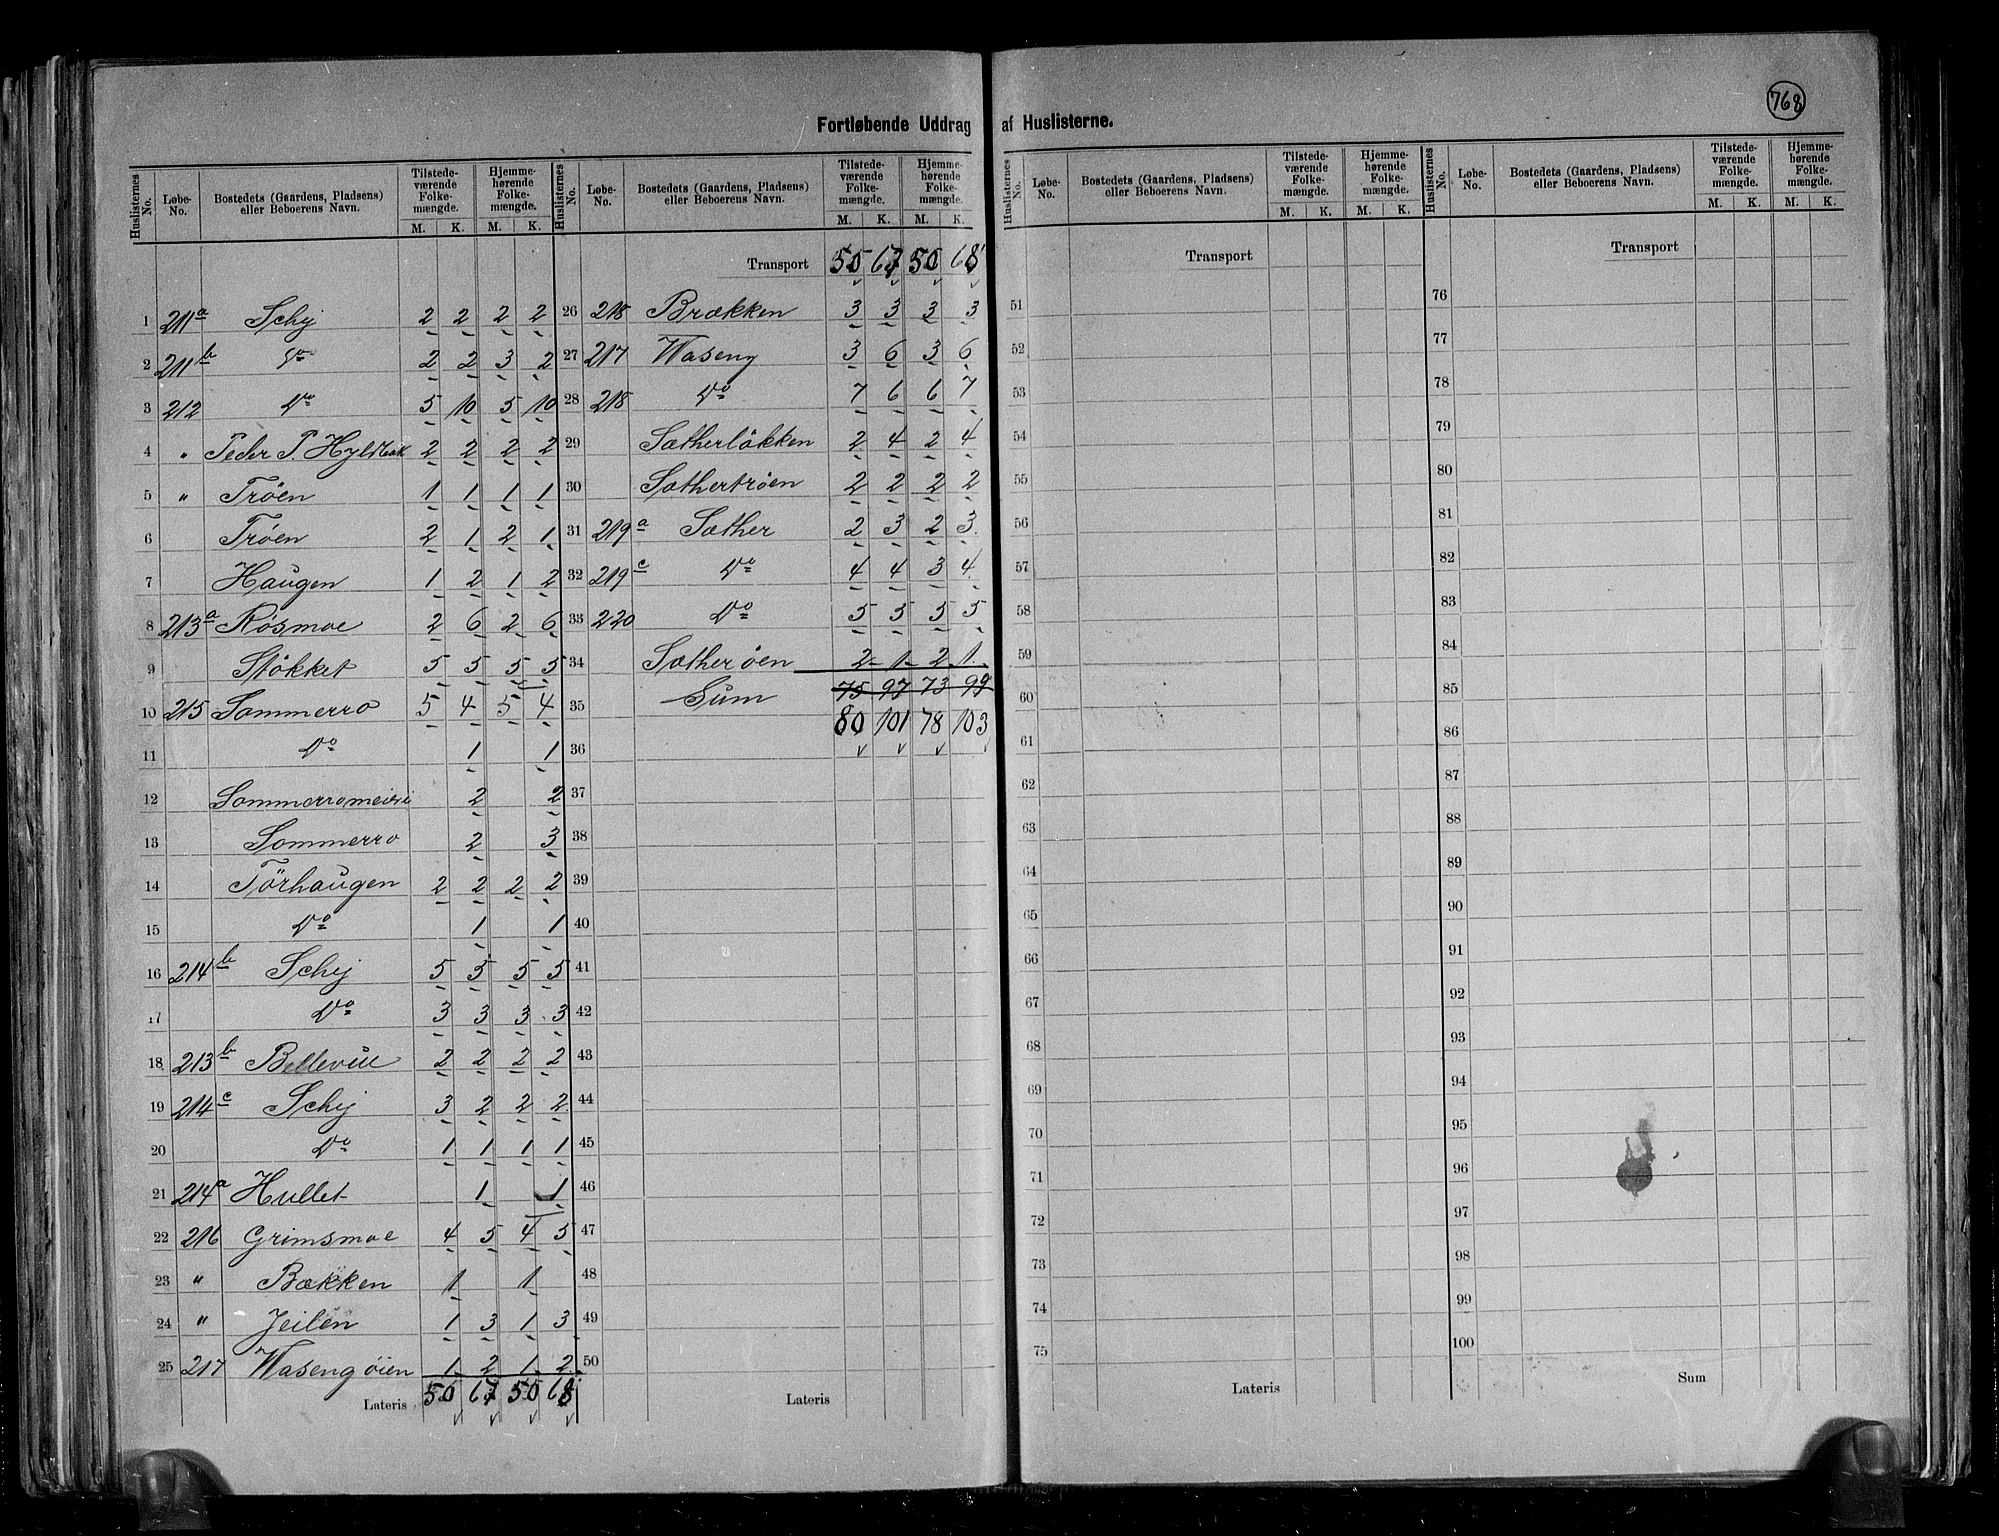 768
Fortløbende Uddrag af Huslisterne.
Huslisternes No. Løbe-No. Bostedets (Gaardens, Pladsens) eller Beboerens Navn. Tilstedeværende Folkemængde. M. K. Hjemmehørende Folkemængde. M. K.
1 211a Schj 2 2 2 2
2 211b Do 2 2 3 2
3 212 Do 5 10 5 10
4 " Peder P. Hyldbak 2 2 2 2
5 " Trøen 1 1 1 1
6 Trøen 2 1 2 1
7 Haugen 1 2 1 2
8 213a Røsmoe 2 6 2 6
9 Støkket 5 5 5 5
10 215 Sommerro 5 4 5 4
11 Do 1 1
12 Sommerromeieri 2 2
13 Sommerro 2 3
14 Törhaugen 2 2 2 2
15 Do 1 1
16 214b Schj 5 5 5 5
17 Do 3 3 3 3
18 213b Bellevue 2 2 2 2
19 214c Schj 3 2 2 2
20 Do 1 1 1 1
21 214a Hullet 1 1
22 216 Grimsmoe 4 5 4 5
23 " Bækken 1 1
24 " Jeilen 1 3 1 3
25 217 Wasengøien 1 2 1 2
Lateris 50 67 50 68
Huslisternes No. Løbe-No. Bostedets (Gaardens, Pladsens) eller Beboerens Navn. Tilstedeværende Folkemængde. M. K. Hjemmehørende Folkemængde. M. K.
Transport 50 67 50 68
26 218 Brækken 3 3 3 3
27 217 Waseng 3 6 3 6
28 218 Do 7 6 6 7
29 Sætherløkken 2 4 2 4
30 Sæthertrøen 2 2 2 2
31 219a Sæther 2 3 2 3
32 219c Do 4 4 3 4
33 220 Do 5 5 5 5
34 Sætherøen 2 1 2 1
35 Sum 75 97 73 99
80 101 78 103
36
37
38
39
40
41
42
43
44
45
46
47
48
49
50
Lateris
Huslisternes No. Løbe-No. Bostedets (Gaardens, Pladsens) eller Beboerens Navn. Tilstedeværende Folkemængde. M. K. Hjemmehørende Folkemængde. M. K.
Transport
51
52
53
54
55
56
57
58
59
60
61
62
63
64
65
66
67
68
69
70
71
72
73
74
75
Lateris
Huslisternes No. Løbe-No. Bostedets (Gaardens, Pladsens) eller Beboerens Navn. Tilstedeværende Folkemængde. M. K. Hjemmehørende Folkemængde. M. K.
Transport
76
77
78
79
80
81
82
83
84
85
86
87
88
89
90
91
92
93
94
95
96
97
98
99
100
Sum